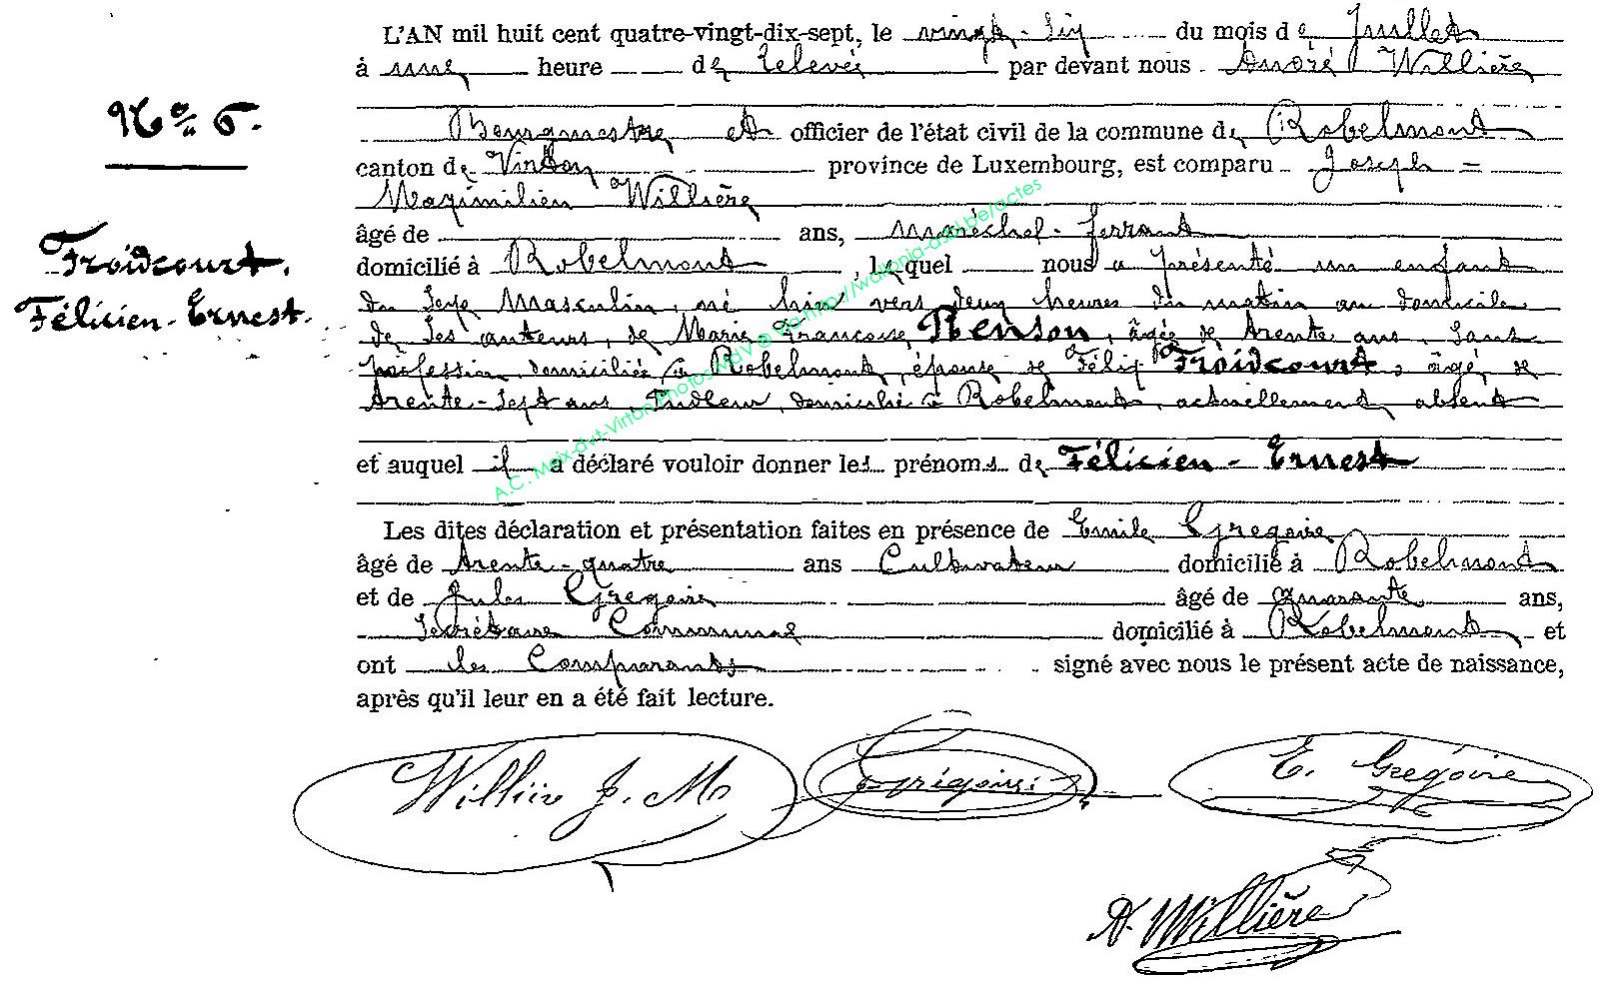 L'AN mil huit cent quatre-vingt-dix-sept, le vingt-six du mois de Juillet
à une heure de relevée par devant nous André Willière
Bourgmestre et officier de l'état civil de la commune de Robelmont
canton de Virton province de Luxembourg, est comparu Joseph =
Maximilien Willière
âgé de ans, maréchal-ferrant
domicilié à Robelmont, lequel nous a présenté un enfant
du sexe masculin, né hier vers deux heures du matin au domicile
de ses auteurs, de Marie Françoise Renson, âgée de trente ans, sans
profession, domiciliée à Robelmont, épouse de Félix Froidcourt, âgé de
trente-sept ans, domicilié à Robelmont, actuellement absent
et auquel il a déclaré vouloir donner les prénoms de Félicien-Ernest
Les dites déclaration et présentation faites en présence de Emile Gregoire
âgé de trente-quatre ans Cultivateur domicilié à Robelmont
et de Jules Gregoire âgé de quarante ans,
Secrétaire Communal domicilié à Robelmont et
ont les Comparants signé avec nous le présent acte de naissance,
après qu'il leur en a été fait lecture.
No 6.
Froidcourt.
Félicien-Ernest.
Willière J. M.
Grégoire J
E. Grégoire
A. Willière
A.C. Meix-dvt-Virton Photos MdV @ via http://walonia-asbl.be/actes